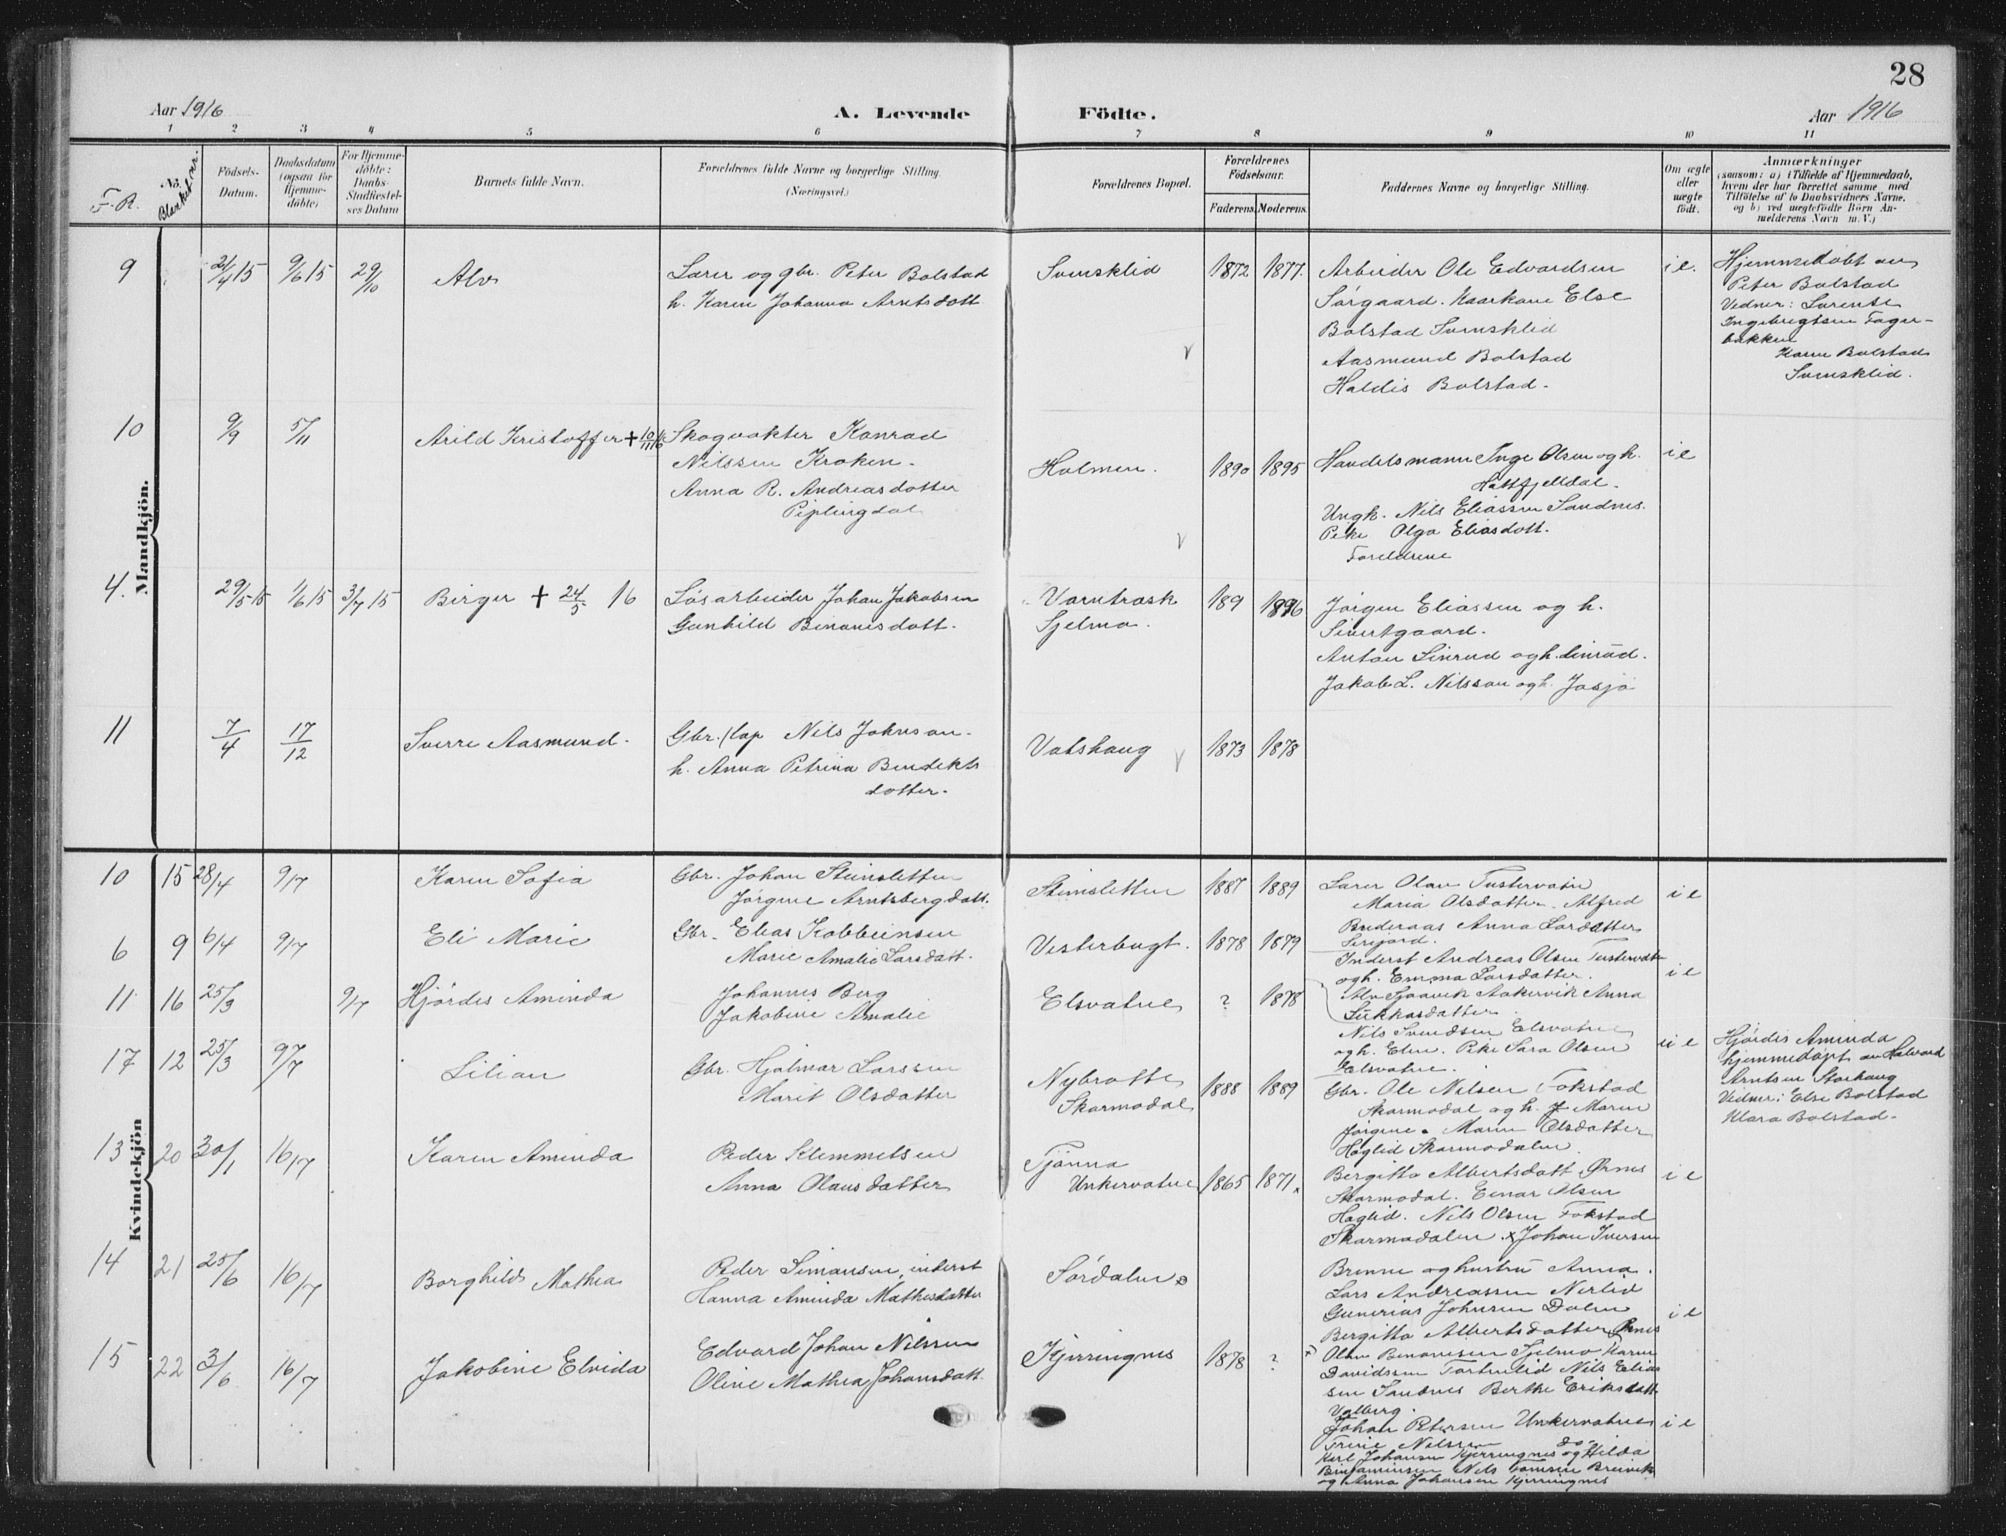 28
Aar 1916
A. Levende Födte.
Aar 1916
1 2 3 4 5 6 7 8 9 10 11
F. R.
No.
Blanket nr.
Födsels-
Datum.
Daabsdatum
(ogsaa for
Hjemme-
döbte)
For Hjemme-
döbte:
Daabs-
Stadfæstel-
ses Datum
Barnets fulde Navn.
Forældrenes fulde Navne og borgerlige Stilling.
(Næringsvei.)
Forældrenes Bopæl.
Forældrenes
Födselsaar.
Faderens. Moderens.
Faddernes Navne og borgerlige Stilling.
Om ægte
eller
uægte
födt.
Anmærkninger
(saasom: a) i Tilfælde af Hjemmedaab,
hvem der har forrettet samme med
Tilföielse af to Daabsvidners Navne,
og b) ved uægtefödte Börn An-
melderens Navn m. V.)
Mandkjön.
9 21/4 15 9/6 15 29/10 Alv
Lærer og gbr. Peter Bolstad
h. Karen Johanna Arntsdott
Svensklid 1872 1877.
Arbeider Ole Edvardsen
Sørgaard. Kaarkone Else
Bolstad Svensklid
Aasmund Bolstad
Haldis Bolstad.
i e.
Hjemmedöbt av
Peter Bolstad
Vidner: Lorentse
Ingebrigtsen Fager-
bakken
Karen Bolstad
Svensklid.
10 9/9 5/11 Arild Kristoffer + 10/11 16
Skogvokter Konrad
Nilssen Kroken.
Anna R. Andreasdotter
Piplingdal
Holmen. 1890 1895
Handelsmann Inge Olsen og h.
Hattfjelldal.
Ungk. Nils Eliassen Sandnes.
Pike Olga Eliasdott.
Foreldrene
i e
4. 29/5 15 1/6 15 3/7 15 Birger + 24/5 16
Løsarbeider Johan Jakobsen
Gunhild Benonisdott.
Varntrask
Sjelmo.
189 1896
Jørgen Eliassen og h.
Sivertgaard.
Anton Linrud og h. Linrud.
Jakob L. Nilsson og h. Josjø
11 7/4 17/12 Sverre Aasmund.
Gbr. /lap Nils Johnsen.
h. Anna Petrina Bendikts
dotter.
Vatshaug 1873 1878
Kvindekjön
10 15 28/4 9/7 Karen Sofia
Gbr. Johan Steinsletten
Jørgine Arntsbergdott.
Steinsletten 1887 1889
Lærer Olav Tustervatn
Maria Olsdotter. Alfred
Anna Larsdotter
i e
6 9 6/4 9/7 Eli Marie
Gbr. Elias Kobbeinsen
Marie Amalie Larsdatt.
Vesterbugt. 1878 1879
Inderst Andreas Olsen Tustervatn
og h. Emma Larsdatter.
i e
11 16 25/3 9/7 Hjørdis Aminda
Johannes Berg
Jakobine Amalie
Elsvatne ? 1878
Aakervik Anna
Nils Svendsen Elsvatne
og h. Elen. Pike Sara Olsen
Elsvatne.
i e
Hjørdis Aminda
hjemmedöpt av Halvard
Arntsen Storhaug
Vidner: Else Bolstad
Klara Bolstad.
17 12 25/3 9/7 Lilian
Gbr. Hjalmar Larssen
Marit Olsdatter
Nybrotte
Skarmodal
1888 1889
Gbr. Ole Nilsen Fokstad
Skarmodal og h. Maren
Jørgine. Maren Olsdatter
Haglid Skarmodalen.
13 20 30/1 16/7 Karen Aminda
Peder Klemmetsen
Anna Olausdatter
Tjønna
Unkervatne
1865 1871
Bergitta Albertsdatt Ørnes
Skarmodal. Einar Olsen
Haglid. Nils Olsen Fokstad
Skarmodalen x Johan Iversen
i e
14 21 25/6 16/7 Borghild Mathea
Peder Simonsen inderst
Hanna Aminda Mathisdatter
Sørdalen
Brenne og hustru Anna.
Lars Andreassen Nerlid
Gunerius Johnsen Dalen
Bergitta Albertsdatter Ørnes
i e
15 22 3/6 16/7 Jakobine Elvida
Edvard Johan Nilssen
Oline Mathea Johansdatt.
Kjerringnes 1878 ?
Olav Benonisen Sjelmo Karen
Davidssen Nils Elias
sen Sandnes Berthe Eriksdatt
Valberg.
Johan Petersen Unkervatne
Trine Nilssen do
Karl Johansen Kjerringnes og Hilda
Benjaminsen Nils Tomsen Breivik
og Anna Johansen Kjerringnes
i e